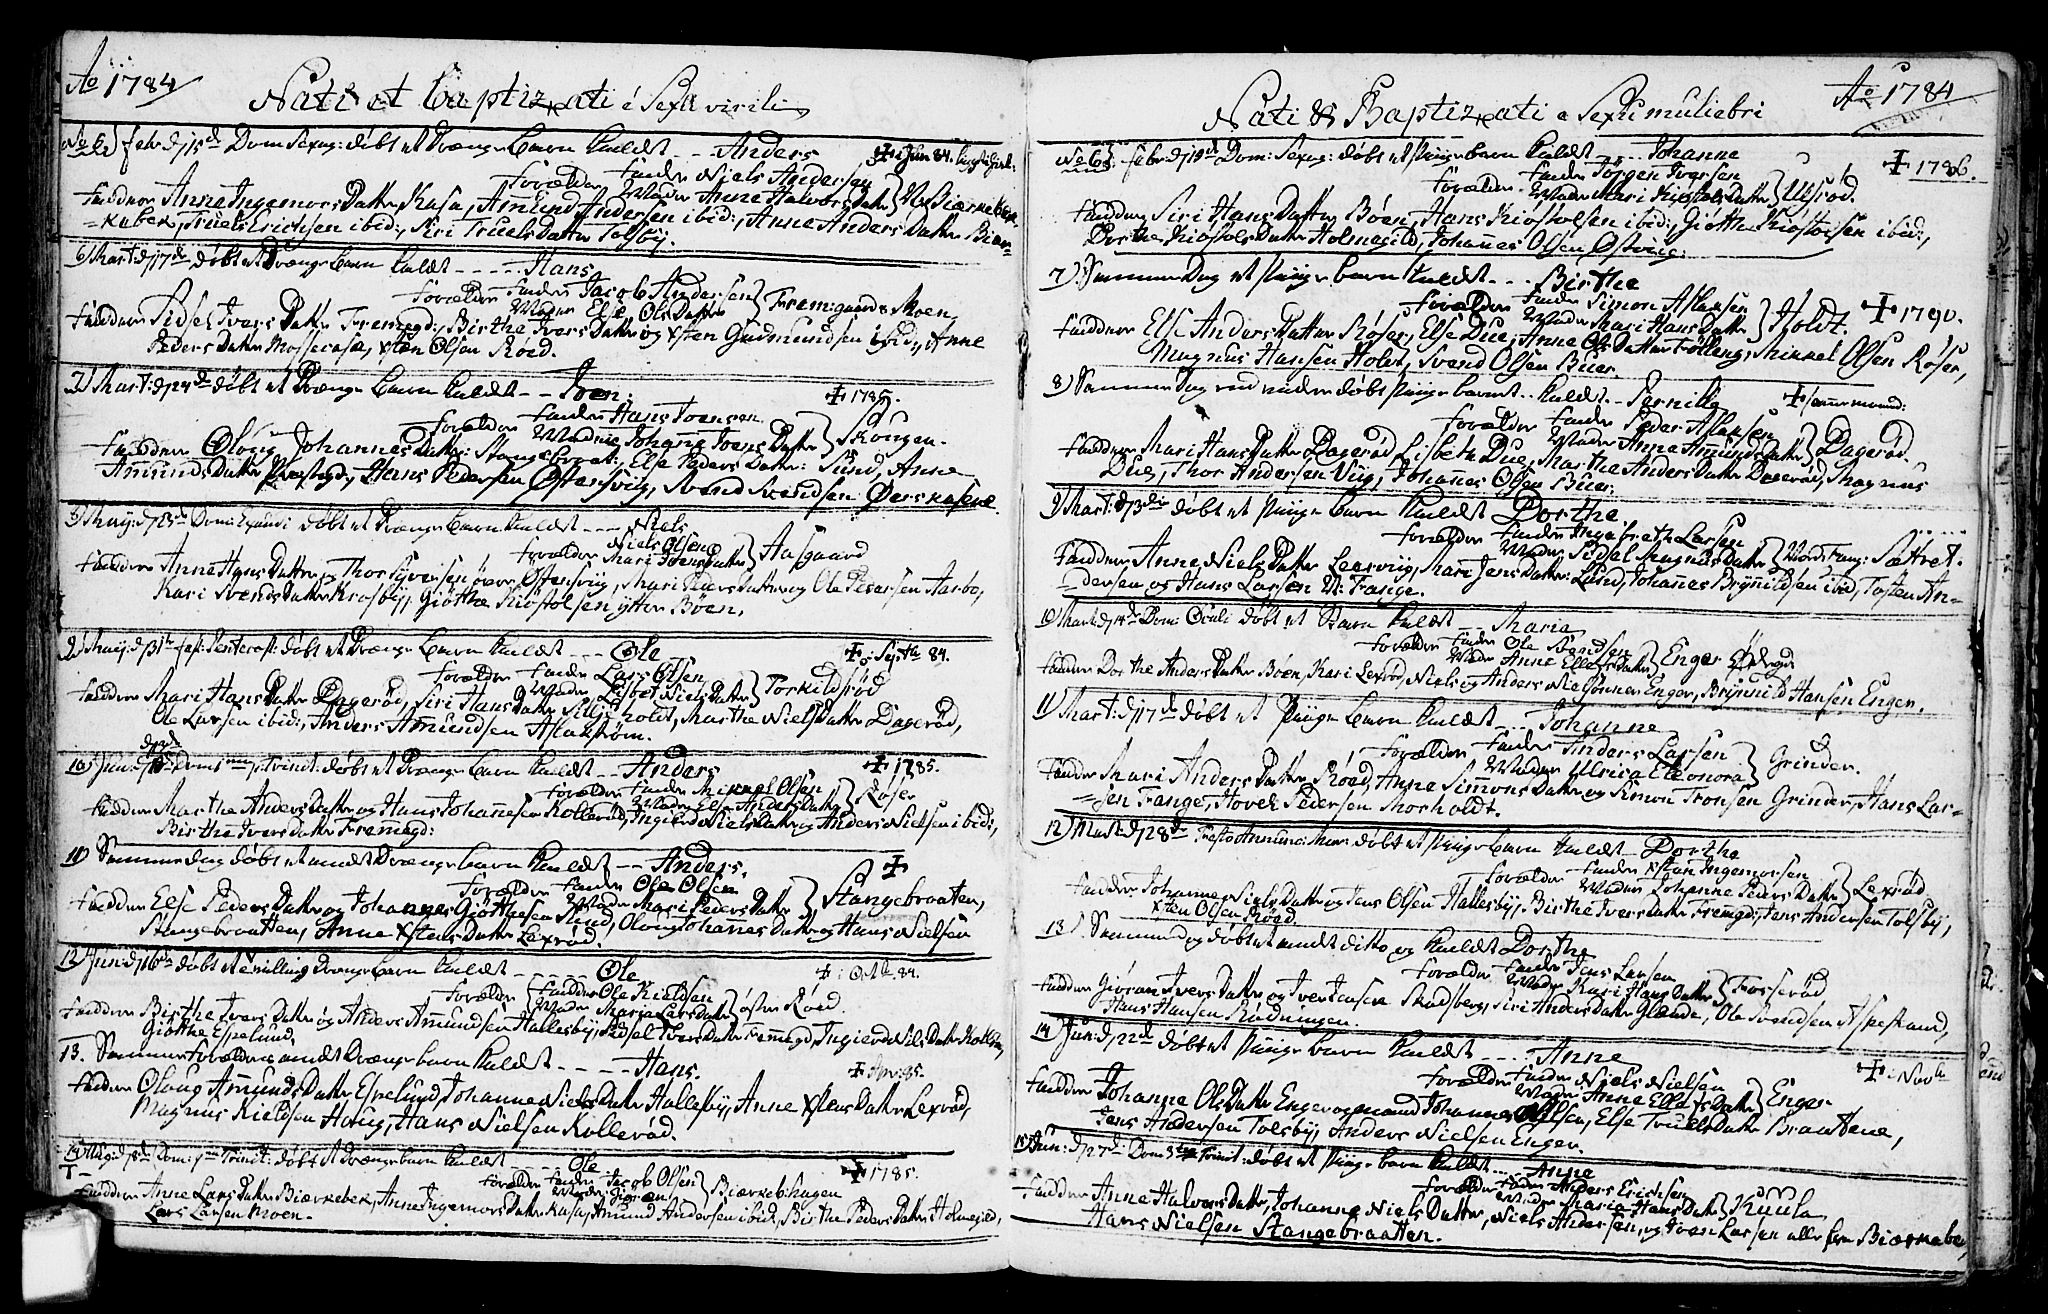 Ao 1784
Nati et baptizati é Sexu virili
No 6) febr: d 15de Dom: Sexag: döbt et Drænge barn kaldet --- Anders
Forældre fader Niels Andersen Moder Anne Halvors Datter
Faddere Anne Ingemors Datter Kasa, Amund Andersen ibid:, Anne Anders Datter Biær-
=kebek, Truels Erichsen ibid:, Siri Truels Datter Tolsby.
6) Mart: d 17de döbt et Drænge barn kaldet ---- Hans
Forældre fader Jacob Andersen Moder Else Ols Datter } Fremigaards Moen
Faddere Sidsel Ivers Datter Fremegd:, Birthe Ivers Datter og Xsten Gudmundsen ibid:, Anne
Peders Datter Mosserase, Xsten Olsen Röed.
7) Mart: d 24de döbt et Drænge barn kaldet -- Joen. + 1785.
Forældre fader Hans Joensen Moder Johane Joens Datter } Skougen.
Faddere Oloug Johannes Datter: Stangebraat:, Else Peders Datter: Sund, Anne
Amunds Datter Prestegd:, Hans Pedersen Östensvig, Svend Svendsen
8) Maij: d 23de Dom: Exaudi döbt et Drænge barn kaldet --- Niels
Forældre Niels Olsen Mari Joens Datter } Aasgaard
Faddere Anne Hans Datter, Thor Syversen övre Östensvig, Mari Peders Datter og Ole Pedersen Aasbo,
Kari Svends Datter Krosby, Giöthe Kiöstolsen ytter Böen,
9) Maij: d 31te fest: Pentecost: döbt et Drænge barn kaldet --- Ole + Septbr 84.
Forældre fader Lars Olsen Moder Lisbet Niels Datter } Torkildsröd
Faddere Mari Hans Datter Dageröd, Siri Hans Datter Siljeholdt, Marthe Niels Datter Dageröd,
Ole Larsen ibid:, Anders Amundsen Aslakstrom.
10) Jun: d Dom: 1me p: Trinit: döbt et Drænge barn kaldet -- Anders + 1785.
Forældre fader Mikkel Olsen Moder Else Anders Datter } Röser
Faddere Marthe Anders Datter og Hans Johannesen Kolleröd, Ingierd Niels Datter og Anders Nielsen ibid:,
Birthe Ivers Datter Fremegd:
11) Samme dag döbt et andet Drænge barn kaldet -- Anders. +
Forældre fader Ole Olsen Moder Mari Peders Datter } Stangebraaten,
Faddere Else Peders Datter og Johannes Giöthesen Sund, Oloug Johanes Datter og Hans Nielsen
Stangebraatten, Anne Xstens Datter Lexröd.
12) Jun: d 16de döbt et tvilling Drænge barn kaldet ----- Ole + Octbr 84.
Forældre fader Ole Kieldsen Moder Maria Lars Datter } östen Röed.
Faddere Birthe Ivers Datter og Anders Amundsen Hallesby, Sidsel Ivers Datter Fremegd, Ingierd Nils Datter
Giöthe Espelund.
13. Samme forældres andet Drænge barn kaldet ----- Hans. + Apr: 85.
Faddere Oloug Amunds Datter Espelund, Johanne Niels Datter Hallesby, Anne Xstens Datter Lexröd,
Magnus Kieldsen Houg, Hans Nielsen Kolleröd.
14) Aug: d Dom: Trinit: döbt et Drænge barn kaldet ---- Ole + 1785.
Forældre fader Jacob Olsen Moder Giöran } Biærkebekhagen
Faddere Anne Lars Datter Biærkebek, Anne Ingemors Datter Kasa, Amund Andersen ibid:, Birthe Peders Datter Holmegild,
Lars Larsen Moen.
Ao 1784
Nati & Baptizati e Sexu muliebri
No 6) febr: d 15de Dom: Sexag: döbt et Piige barn kaldet --- Johanne + 1786.
Forældre fader Jörgen Iversen Moder Mari Kiöstols Datter } Ulsröd.
Faddere Siri Hans Datter Böen, Hans Kiöstolsen ibid:, Giöthe Kiöstolsen ibid:,
Dorthe Kiöstols Datter Holmegild, Johannes Olsen Östvig:
7) Samme Dag et Piige barn kaldet --- Birthe
Forældre fader Simon Aslaksen Moder Mari Hans Datter } Holdt. + 1790.
Faddere Else Anders Datter Röser, Else Due, Anne Ols Datter Trölleng, Mikkel Olsen Röser,
Magnus Hansen Holdt, Svend Olsen Buer.
8) Samme Dag end videre döbt Piige barnet kaldet -- Pernille +
Forældre fader Peder Aslaksen Moder Anne Amunds Datter } Dageröd.
Faddere Mari Hans Datter Dageröd, Lisbeth Due, Marthe Anders Datter Dageröd, Magnus
Due, Thor Andersen Viig, Johannes Olsen Buer.
9) Mart: d 3die döbt et Piige barn kaldet Dorthe.
Forældre fader Ingebreth Larsen Moder Sidsel Magnus Datter } Nord Frang: Sætret.
Faddere Anne Niels Datter Leervig, Mari Jens Datter: Lund, Johanes Brynildsen ibid, Tosten An-
=dersen og Hans Larsen N: Frange.
10) Mart: d 14de Dom: Oculi döbt et Barn kaldet -- Maria
Forældre fader Ole Svendsen Moder Anne Ellefs Datter } Enger
Faddere Dorthe Anders Datter Böen, Kari Lexröd, Niels og Anders Nielsönner Enger, Brynild Hansen Engen.
11) Mart: d 17de döbt et Piige barn kaldet --- Johanne
Forældre fader Anders Larsen Moder Ulrica Eleonora } Grinder.
Faddere Mari Anders Datter Röed, Anne Simons Datter og Simon Tronsen Grinder, Hans Lar-
=sen Frange, Hovel Pedersen Morholdt.
12) Mart: d 28de Festo Annunc: Mar: döbt et Piige barn kaldet - Dorthe
Forældre fader Xstian Ingemorsen Moder Johanne Peders Datter } Lexröd.
Faddere Johanne Niels Datter og Jens Olsen Hallesby, Birthe Ivers Datter Fremegd:, Jens Andersen Tolsby,
Xsten Olsen Röed.
13. Samme dag döbt et andet ditto og kaldet Dorthe
Forældre fader Jens Larsen Moder Kari Hans Datter } Fosseröd
Faddere Giöran Ivers Datter og Iver Jensen Skadsberg, Siri Anders Datter Glænde, Ole Svendsen Aspestand,
Hans Hansen Rödningen.
14) Jun: d 22de döbt et Piige barn kaldet ---- Anne + Novbr
Forældre fader Niels Nielsen Moder Anne Ellefs Datter } Enger.
Faddere Johanne Ols Datter Enger og mand Johannes Olsen, Else Truels Datter Braatene,
Jens Andersen Tolsby, Anders Nielsen Enger.
15) Jun: d 27de Dom: 3tia Trinit: döbt et Piige barn kaldet ---- Anne
Forældre fader Anders Erichsen Moder Maria Hans Datter } Kuula
Faddere Anne Halvors Datter, Johanne Niels Datter, Niels Andersen, og Iver Larsen alle fra Biærkebe,
Hans Nielsen Stangebraatten.